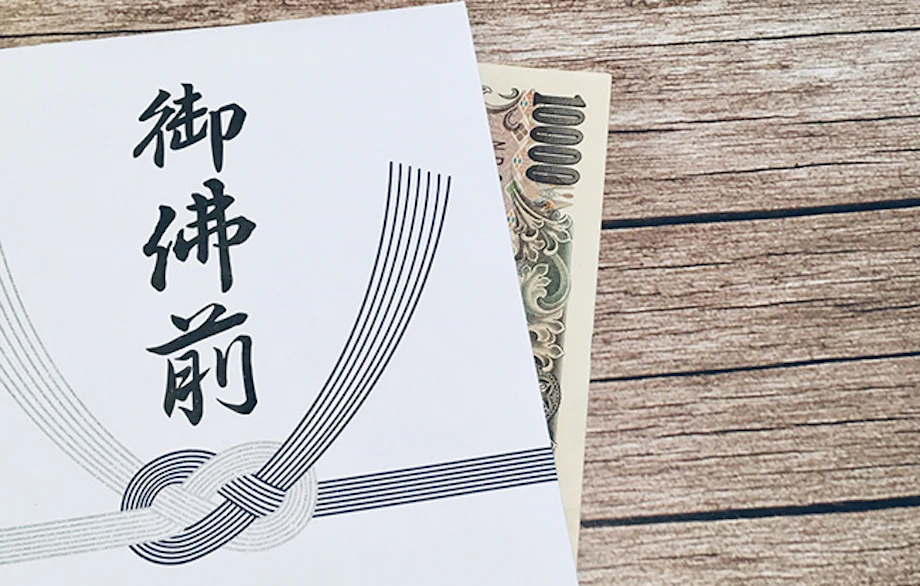 御佛前
10000